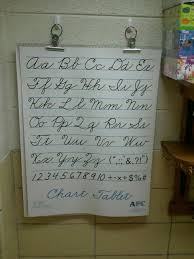 Aa Bb Cc Dd Ee
Ff Gg Hh Ii Jj
Kk Ll Mm Nn
Oo Pp Qq Rr Ss
Tt Uu Vv Ww
Xx Yy Zz (",;&.?!")
12345678910+-x÷$%#
Chart Tablet